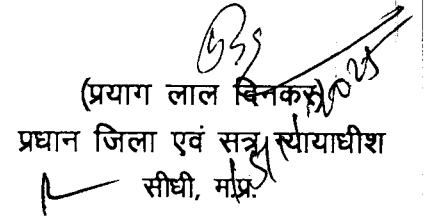 (प्रयाग लाल दिनकर)
प्रधान जिला एवं सत्र न्यायाधीश
सीधी, म.प्र.